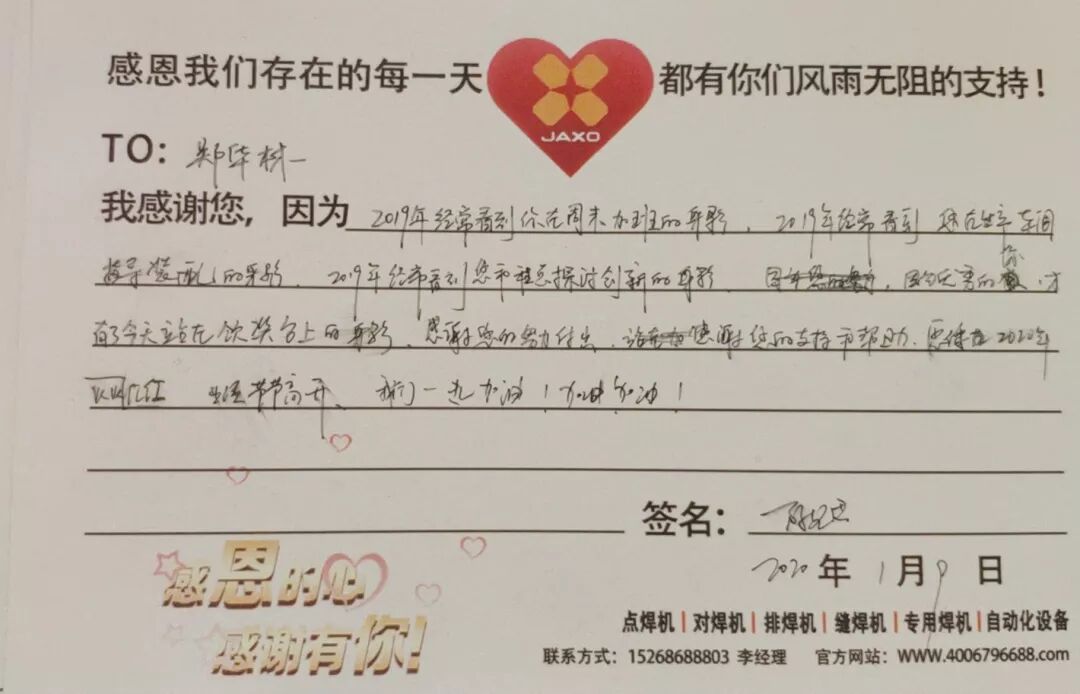 感恩我们存在的每一天 JAXO 都有你们风雨无阻的支持！
TO：郑华树
我感谢您，因为 2019年经常看到你在周末加班的身影，2019年经常看到您在生产车间
指导装配的身影，2019年经常看到您和程总探讨创新的身影，因为无言的你，才
有了今天站在领奖台上的身影，感谢您的努力付出，感谢您的支持和帮助，2020年
红红 生活节节高升，我们一起加油！加油加油！
签名：
2020年1月9日
感恩的心
感谢有你！
点焊机|对焊机|排焊机|缝焊机|专用焊机|自动化设备
联系方式：15268688803 李经理 官方网站：WWW.4006796688.com